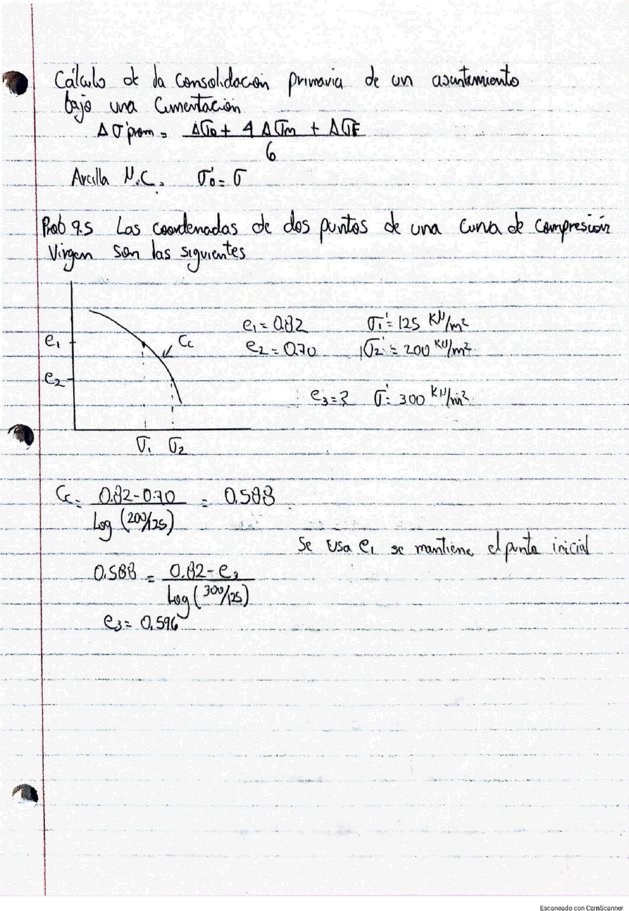 Cálculo de la consolidación primaria de un asentamiento
bajo una Cimentación
Δσ'prom = Δσo + 4 Δσm + Δσf
6
Arcilla N.C. σ'o = σ
Prob 9.5 Las coordenadas de dos puntos de una curva de compresión
Virgen son las siguientes
e1 = 0.82 σ1' = 125 KN/m²
e2 = 0.70 σ2' = 200 KN/m²
e1
Cc
e2
e3 = ? σ' = 300 KN/m²
σ1 σ2
Cc = 0.82 - 0.70 = 0.588
Log (200/125)
Se usa e1 se mantiene el punto inicial
0.588 = 0.82 - e3
Log (300/125)
e3 = 0.596
Escaneado con CamScanner